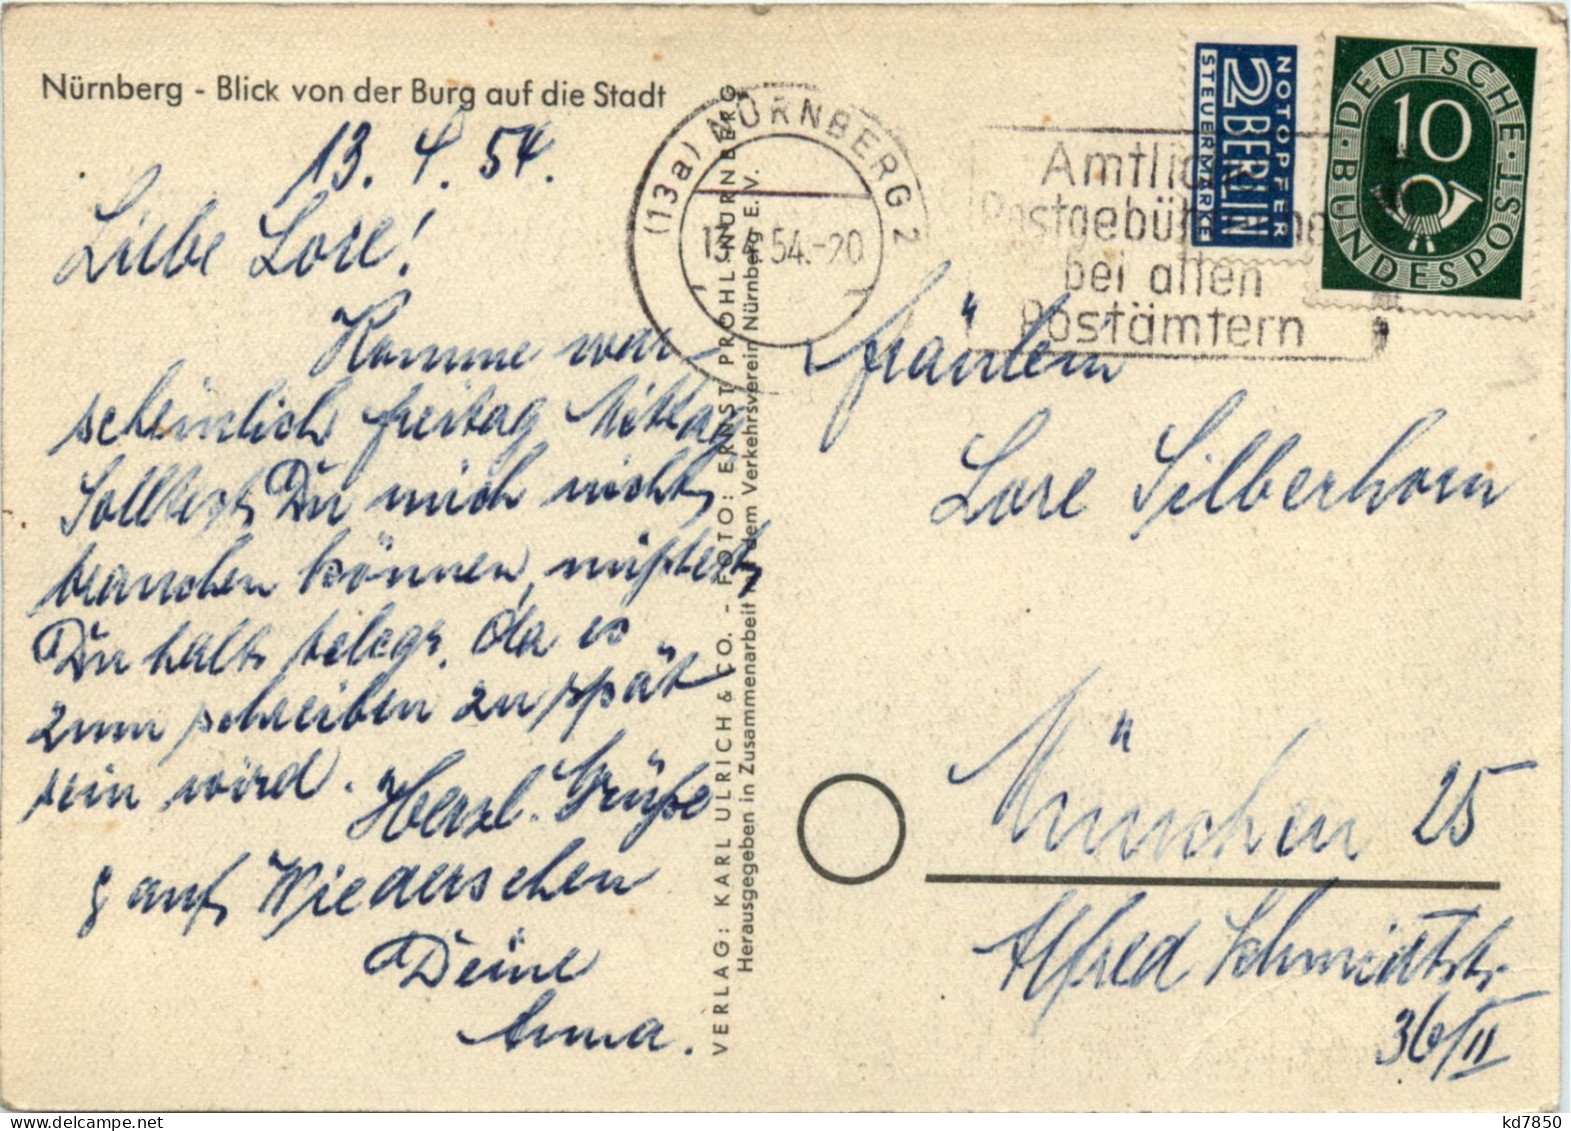 Nürnberg - Blick von der Burg auf die Stadt
13. 4. 54.
Liebe Lore!
Komme war
scheinlich freitag Mittag
Solltest Du mich nicht
brauchen können, müßtest
Du halt telegr. da es
zum schreiben zu spät
sein wird. Herzl. Grüße
& auf Wiedersehen
Deine
Anna.
VERLAG: KARL ULRICH & CO. - FOTO: ERNST PROHL-NÜRNBERG
Herausgegeben in Zusammenarbeit mit dem Verkehrsverein Nürnberg E. V.
(13a) NÜRNBERG 2
13.4.54.-20
Amtliche
Postgebühren
bei allen
Postämtern
NOTOPFER
2 BERLIN
STEUERMARKE
DEUTSCHE · BUNDESPOST ·
10
Fräulein
Lore Silberhorn
München 25
Alfred Schmidtstr.
36/II
kd7850
www.delcampe.net